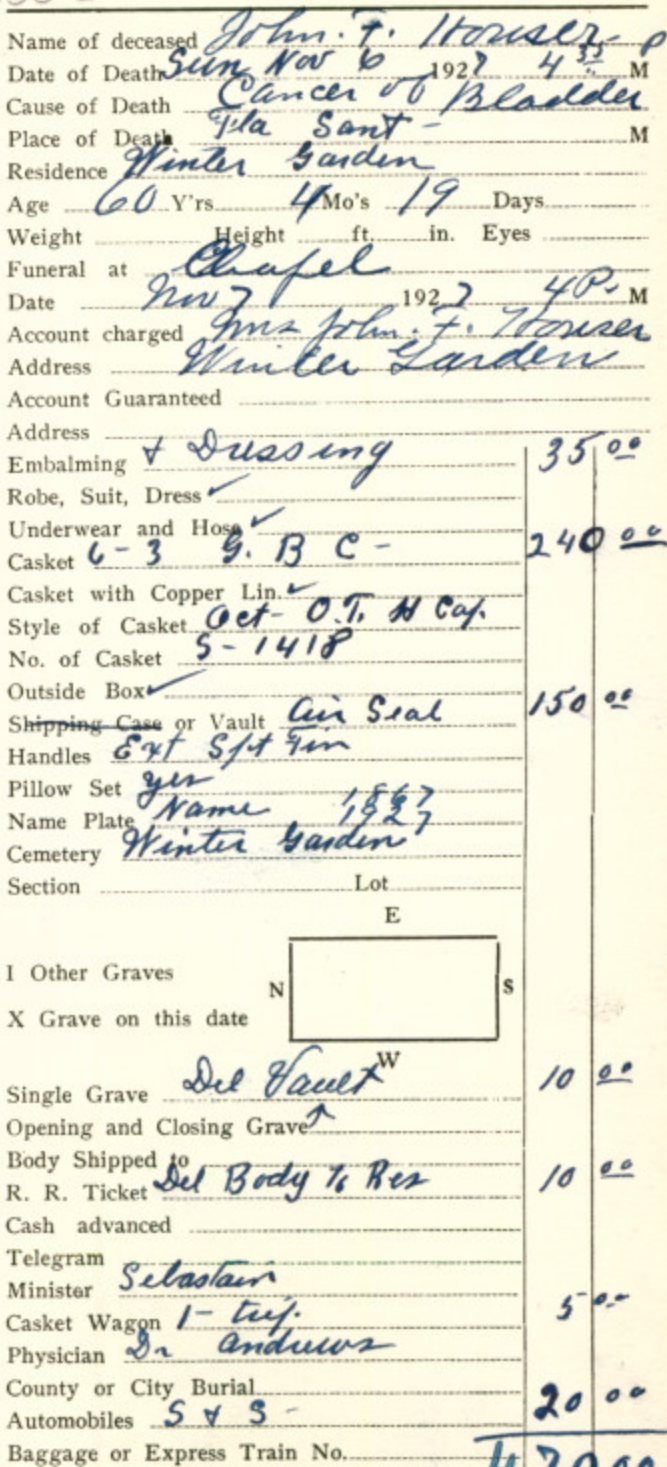 Name of deceased John. F. Houser P
Date of Death Sun Nov 6 1927 4 35 M
Cause of Death Cancer of Bladder
Place of Death Fla Sant - M
Residence Winter Garden
Age 60 Y'rs 4 Mo's 19 Days
Weight Height ft. in. Eyes
Funeral at Chapel
Date Nov 7 1927 4 P. M
Account charged Mrs John. F. Houser
Address Winter Garden
Account Guaranteed
Address
Embalming & Dressing 35 00
Robe, Suit, Dress ✓
Underwear and Hose ✓
Casket 6-3 G. B C - 240 00
Casket with Copper Lin. ✓
Style of Casket Oct- O.T. H Cap.
No. of Casket S-1418
Outside Box ✓
Shipping Case or Vault Air Seal 150 00
Handles Ext Sft Fin
Pillow Set yes
Name Plate Name 1867 1927
Cemetery Winter Garden
Section Lot
E
I Other Graves
N S
X Grave on this date
W
Single Grave Del Vault 10 00
Opening and Closing Grave
Body Shipped to
R. R. Ticket Del Body To Res 10 00
Cash advanced
Telegram
Minister Sebastain
Casket Wagon 1- trip. 5 00
Physician Dr Andrews
County or City Burial
Automobiles S & S - 20 00
Baggage or Express Train No. 470 00